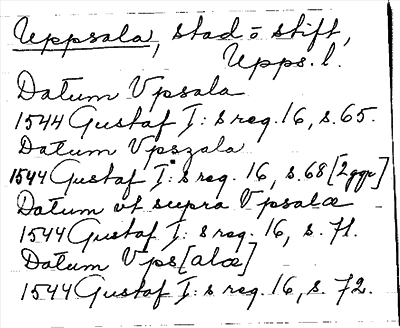 Uppsala, stad o stift,
Upps. l.
Datum Vpsala
1544 Gustaf I: s reg. 16, s. 65.
Datum Vpszala
1544 Gustaf I: s reg. 16, s. 68 [2ggr]
Datum vt supra Vpsalæ
1544 Gustaf I: s reg. 16, s. 71.
Datum Vps[alæ]
1544 Gustaf I: s reg. 16, s. 72.